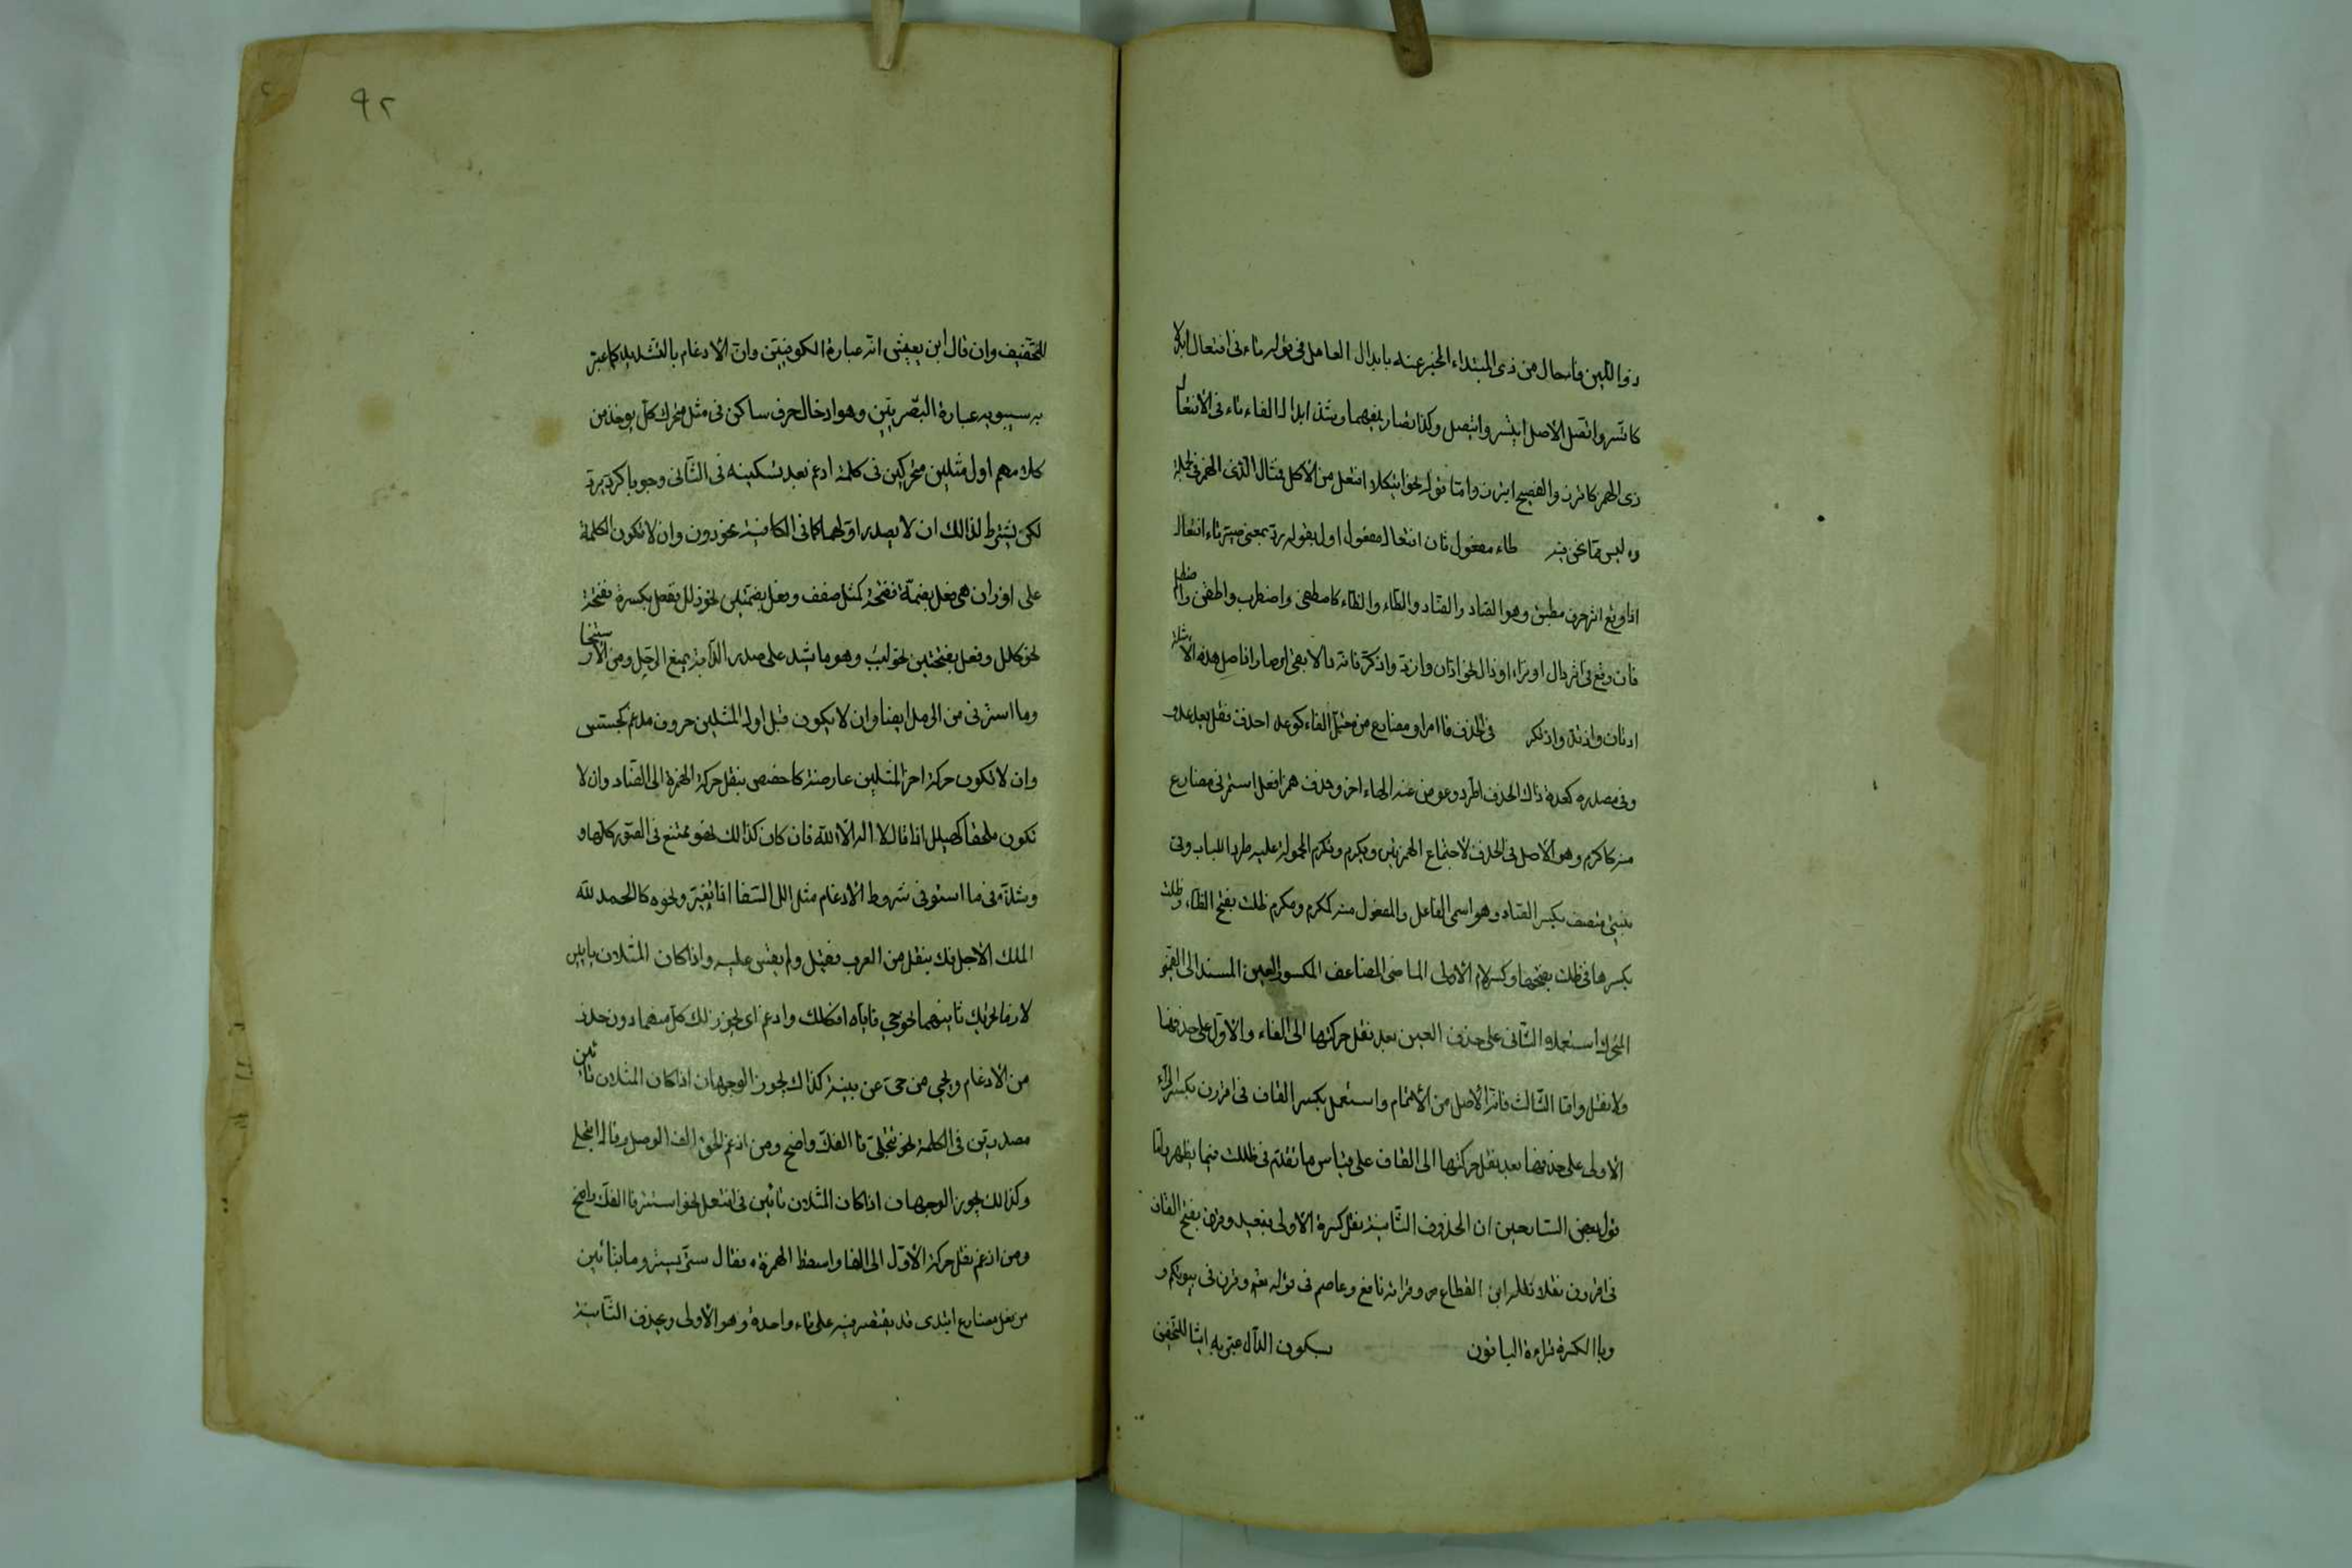 ذو اللين فا حال من ذى المبتداء المخبر عنه بابدال العامل فى قوله تاء فى افتعال ابدلا
كاتسر واتصل الاصل ايتسر وايتصل وكذا تصاريفهما وشذ ابدال الفاء تاء فى الافتعال
ذى الهمز كاتزن والفصيح ايتزن واما قوله نحو ايتكلا افتعل من الأكل فمثال الذى الهمز فى الجملة
وليس مما نحن فيه طاء مفعول ثان افتعال مفعول اول بقوله رد بمعنى صير تاء افتعال
اذا وقع اثر حرف مطبق وهو الصاد والضاد والطاء والظاء كاصطفى واضطرب واطعن واظطلم
فان وقع فى اثر دال او زاء او ذال نحو ادان وازدد وادكر فانه دالا بقى اى صار اذ اصل هذه الامثلة
ادتان وازتد واذتكر فى الحذف فا امر او مضارع من معتل الفاء كوعد احذف فقل يعد عد و
وفى مصدره كعدة ذاك الحذف اطرد وعوض عنه الهاء اخر وحذف همز افعل استمر فى مضارع
منه كاكرم وهو الاصل فى الحذف لاجتماع الهمزتين ويكرم ونكرم المحمولة عليه طردا للباب وفى
بنيتى متصف بكسر الصاد وهو اسمى الفاعل والمفعول منه كمكرم ومكرم ظلت بفتح الظاء وظلت
بكسرها فى ظلت بفتحها وكسر لام الأولى الماضى المضاعف المكسور العين المسند الى الضمير
المتحرك استعملا والثانى على حذف العين بعد نقل حركتها الى الفاء والاول على حذفها
ولا نقل واما الثالث فانه الاصل من الأتمام واستعمل بكسر القاف فى اقررن بكسر الراء
الاولى على حذفها بعد نقل حركتها الى القاف على قياس ما تقدم فى ظللت فيما يظهر واما
قول بعض الشارحين ان المحذوف الثانية نقل كسرة الأولى فبعيد وقرن بفتح القاف
فى اقررن نقلا نقله ابن القطاع من وقراءة نافع وعاصم فى قوله تعم وقرن فى بيوتكم و
وباالكسرة قراءة الباقون بسكون الدال عبر به ايثا للتخفيف
للتخفيف وان قال ابن يعيش انه عبارة الكوفيين وان الادغام بالتشديد كما عبر
به سيبويه عبارة البصريين وهو ادخال حرف ساكن فى مثل متحرك كل يوخذ من
كلامهم اول مثلين متحركين فى كلمة ادغم بعد تسكينه فى الثانى وجوبا كرد يرد
لكن يشترط لذالك ان لا يصدر اولهما كما فى الكافية نحو ددن وان لا تكون الكلمة
على اوزان هى فعل بضمة ففتحة كمثل صفف وفعل بضمتين نحو ذلل بفعل بكسرة ففتحة
نحو كلل وفعل بفتحتين نحو لبب وهو ما يشد على صدر الدابة يمنع الرحل ومن الاسترخا
وما استرق من الرمل ايضا وان لا يكون قبل اول المثلين حروف مدغم كجسس
وان لا تكون حركة اخر المثلين عارضة كاخصص بنقل حركة الهمزة الى الصاد وان لا
تكون ملحقا كهيلل اذا قال لا اله الا الله فان كان كذالك فهو ممتنع فى الصور كلها و
وشذ فى ما استوفى شروط الادغام مثل الل السقا اذا تغير ونحوه كالحمد لله
الملك الأجل فك بنقل من العرب فقبل ولم يقس عليه واذا كان المثلان يايين
لازما تحريك ثانيهما نحو حيى فاياه افكك وادغم اى يجوز لك كل منهما دون حذر
من الادغام ويحيى من حى عن بينة كذاك يجوز الوجهان اذا كان المثلان تائين
مصدرين فى الكلمة نحو تتجلى فا الفك واضح ومن ادغم الحق الف الوصل وقال اتجلى
وكذالك يجوز الوجهان اذا كان المثلان تائين فى افتعل نحو استتر فا الفك واضح
ومن ادغم نقل حركة الأول الى الفا واسقط الهمزة فقال ستر يستر وما بتائين
من فعل مضارع ابتدى قد يقتصر فيه على تاء واحدة وهو الأولى وحذف الثانية
٩٢